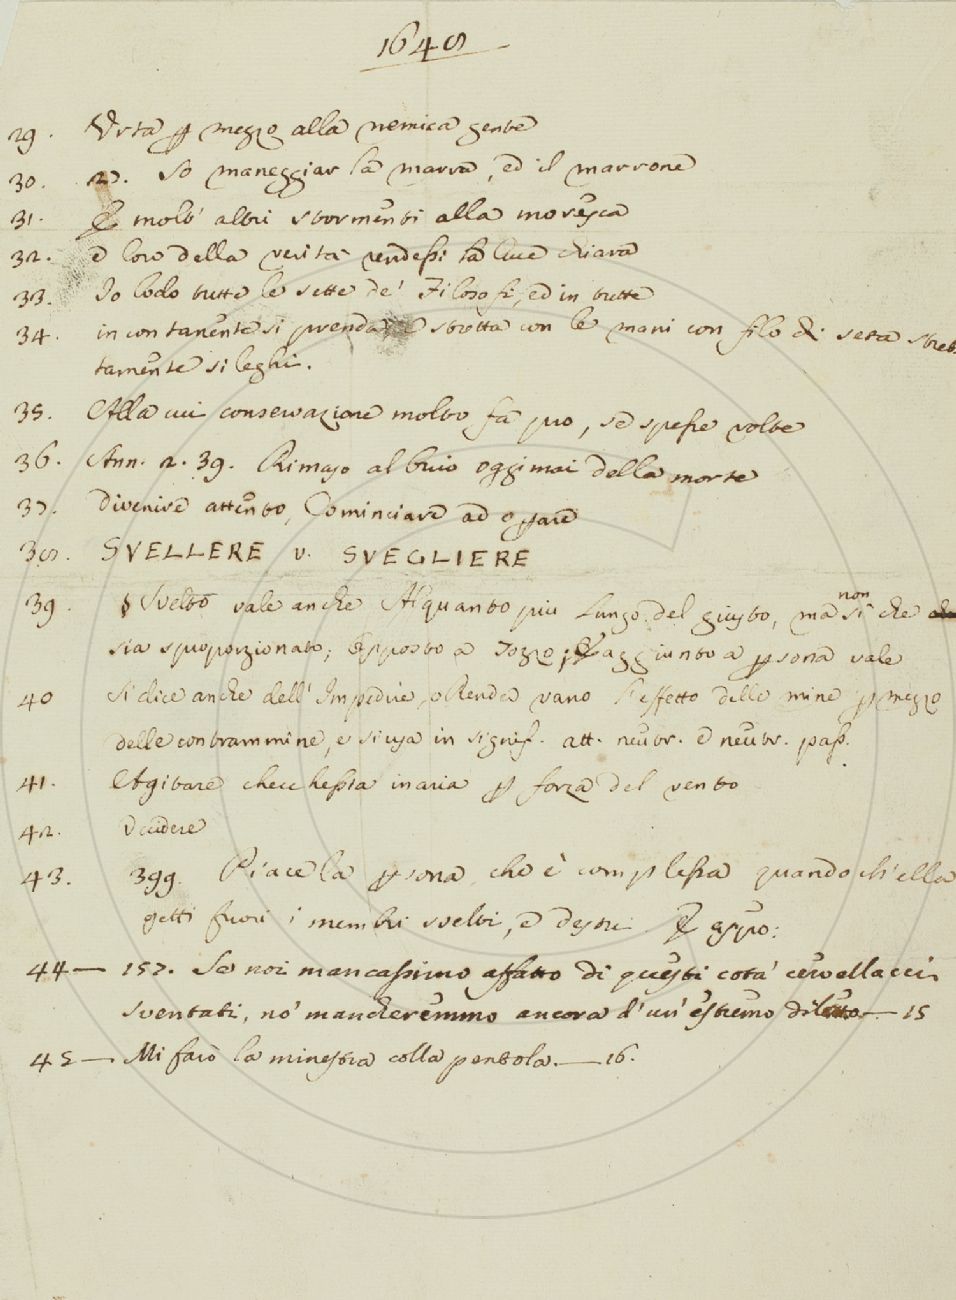 1648
29. Urta p mezzo alla nemica gente
30. 27. So maneggiar la marra, ed il marrone
31. E molt' altri stormenti alla moresca
32. e loro della verità rendessi la luce chiara
33. Io lodo tutte le sette de' Filosofi, ed in tutte
34. incontanente si prenda e stretta con le mani con filo di seta stret
tamente si leghi.
35. Alla cui conservazione molto fa pro, se spesse volte
36. Ann. 2. 39. Rimaso al buio oggimai della morte
37. Divenire attento, Cominciare ad opare
38. SVELLERE v. SVEGLIERE
39. Svelto vale anche Alquanto più Lungo del giusto, ma non sì che
sia sproporzionato; Opposto a Tozzo; E aggiunto a psona vale
40 Si dice anche dell' Impedire, o Render vano l'effetto delle mine p mezzo
delle contrammine, e si usa in signif. att. neutr. e neutr. pass.
41. Agitare checchessia in aria p forza del vento
42. Uccidere
43. 399. Piace la psona, che è complessa quando ch'ella
getti fuori i membri svelti, e destri. E appo:
44— 157. Se noi mancassimo affatto di questi cota' cervellacci
sventati, no' mancheremmo ancora d'un' estremo diletto.—15
45— Mi farò la minestra colla pentola.—16.